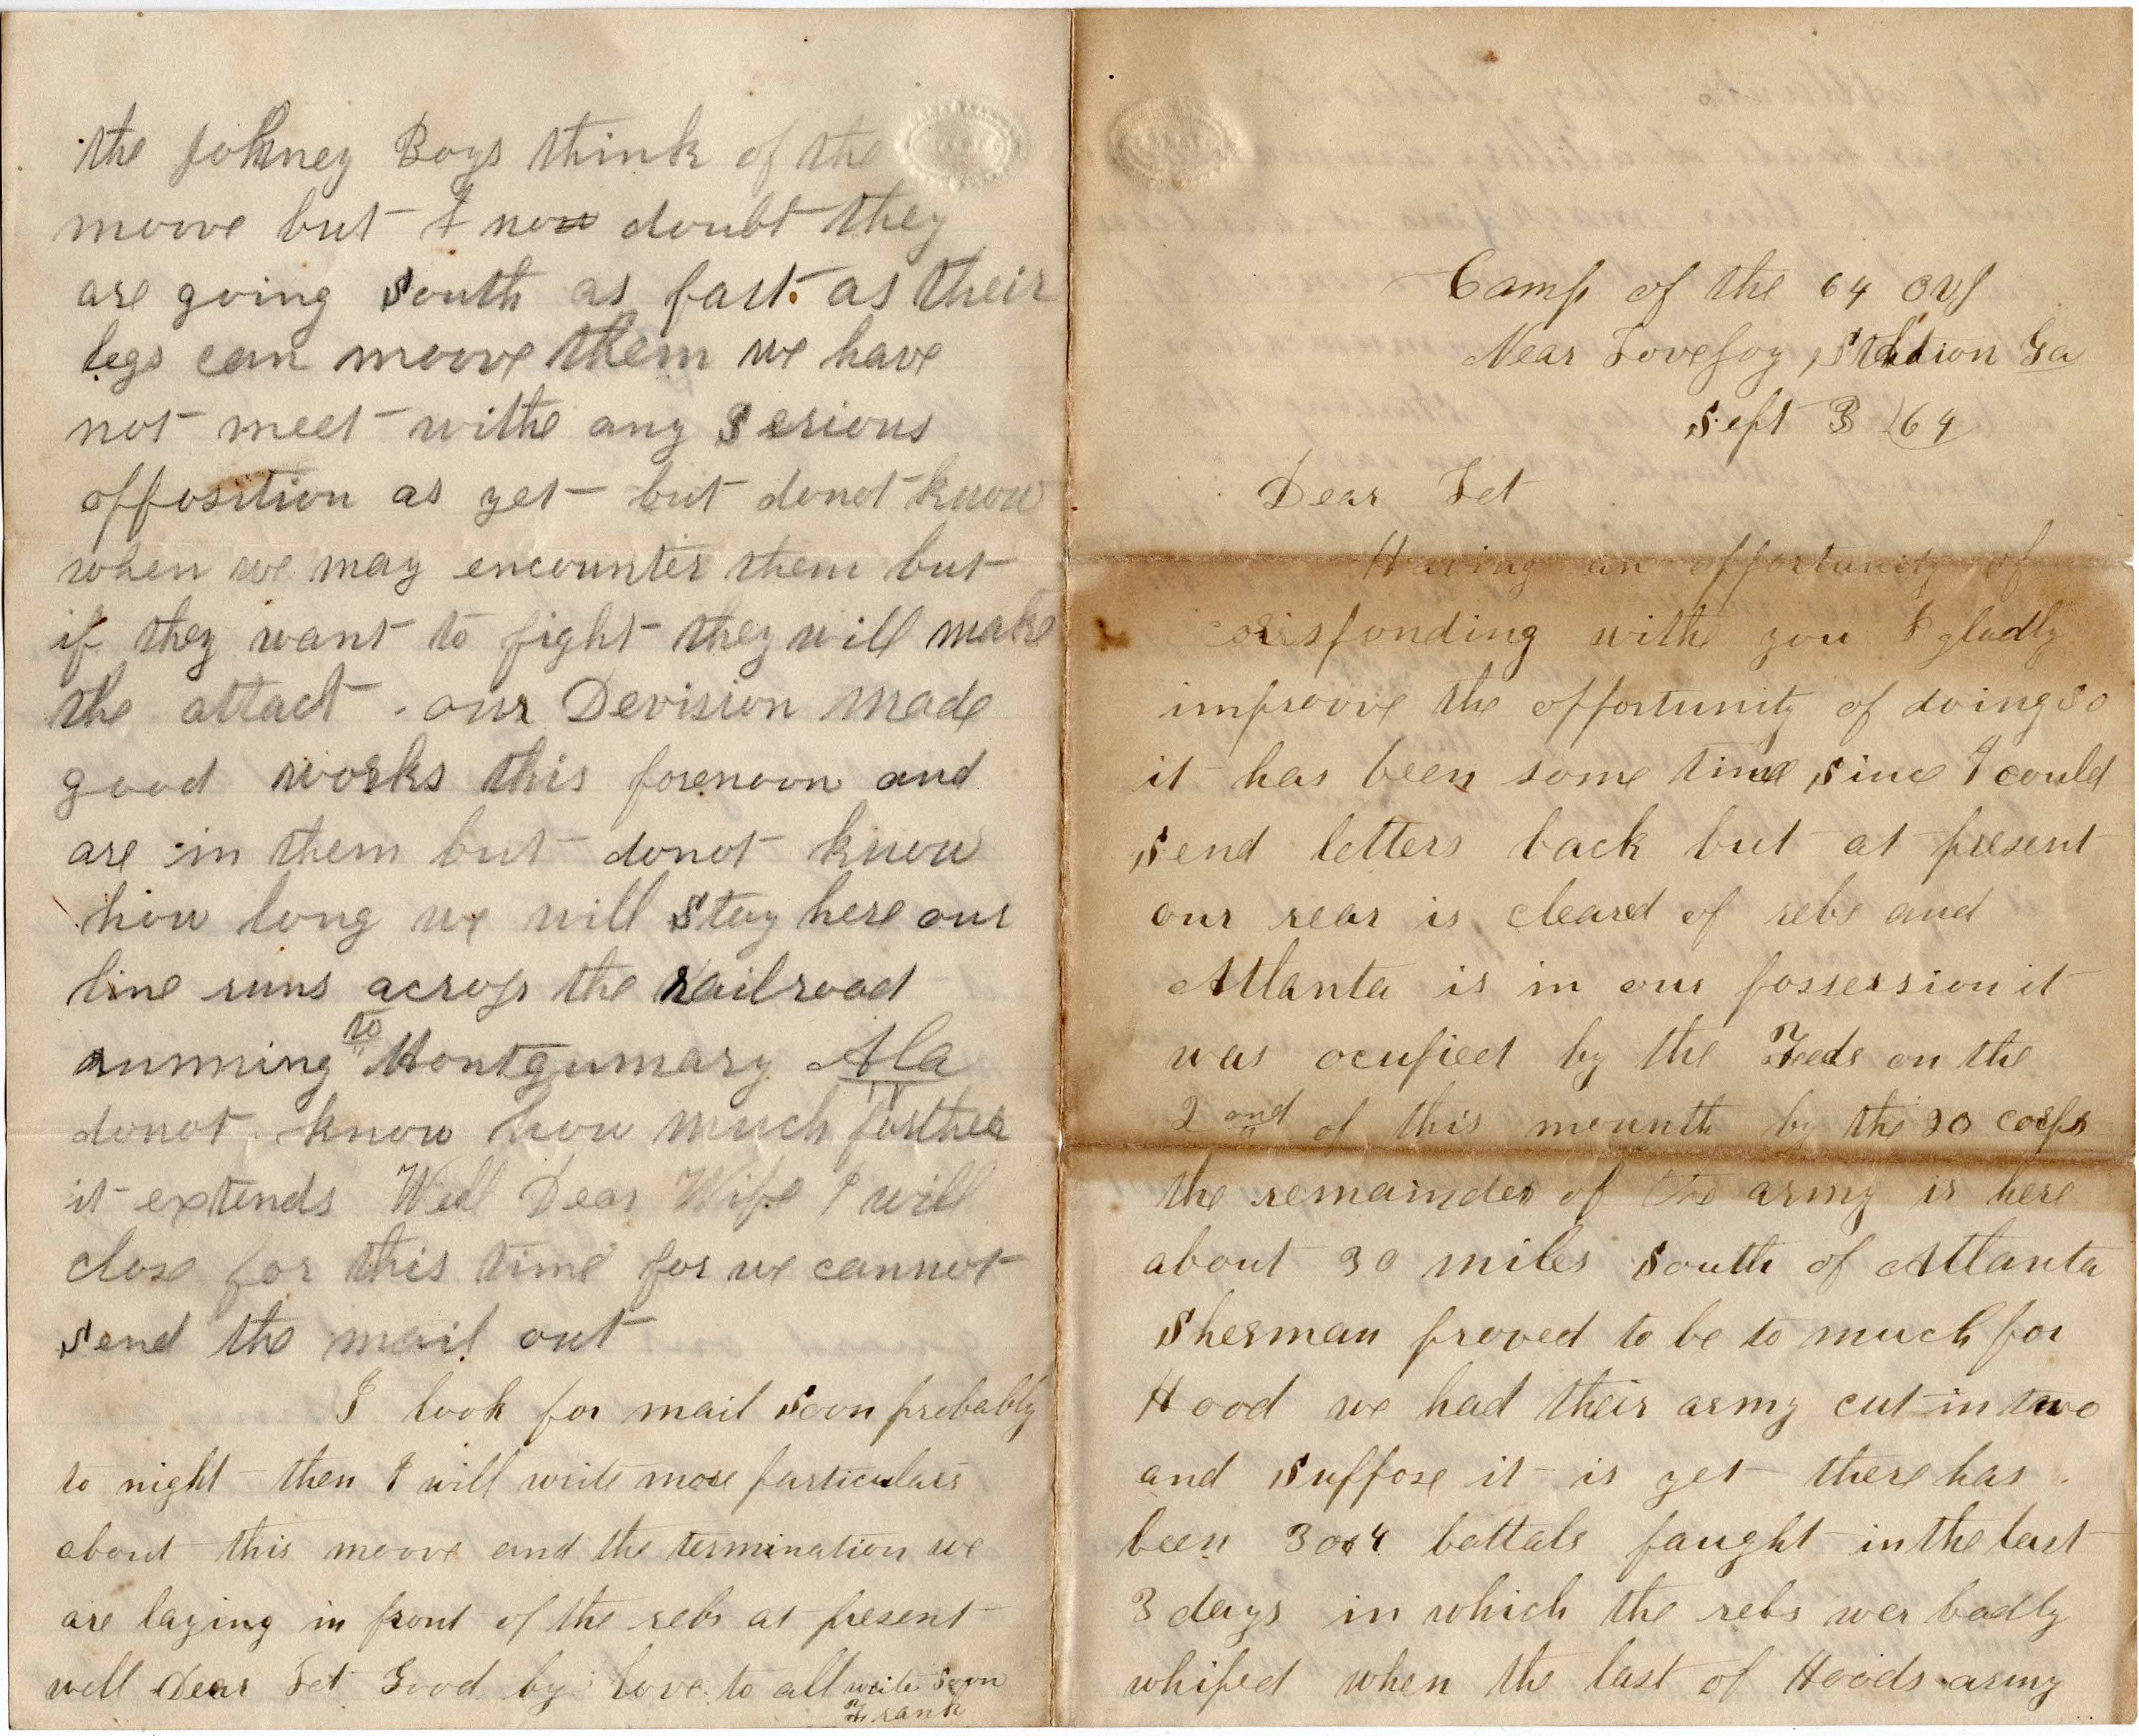 Camp of the 64 OVI
Near Lovejoy Station Ga
Sept 3 /64
Dear Let
Having an opportunity of
corisponding withe you I gladly
improove the opportunity of doing so
it has been some time since I could
send letters back but at present
our rear is cleard of rebs and
Atlanta is in our possession it
was ocupied by the Feds on the
2 ond of this mounth by the 20 corps
the remainder of the army is here
about 30 miles south of Atlanta
Sherman proved to be to much for
Hood we had their army cut in two
and suppose it is yet there has
been 3 or 4 battals faught in the last
3 days in which the rebs wer badly
whiped when the last of Hoods army
the Johney Boys think of the
moove but I now doubt they
are going south as fast as their
legs can moove them we have
not meet withe any serious
opposition as yet but donot know
when we may encounter them but
if they want to fight they will make
the attact . our Devision made
good works this forenoon and
are in them but donot know
how long we will stay here our
line runs across the railroad
running to Montgumary Ala
donot know how much farther
it extends Well Dear Wife I will
close for this time for we cannot
send the mail out
I look for mail soon probably
to night then I will write more particulars
about this moove and the termination we
are laying in front of the rebs at present
well Dear Let Good by Love to all write soon
Frank